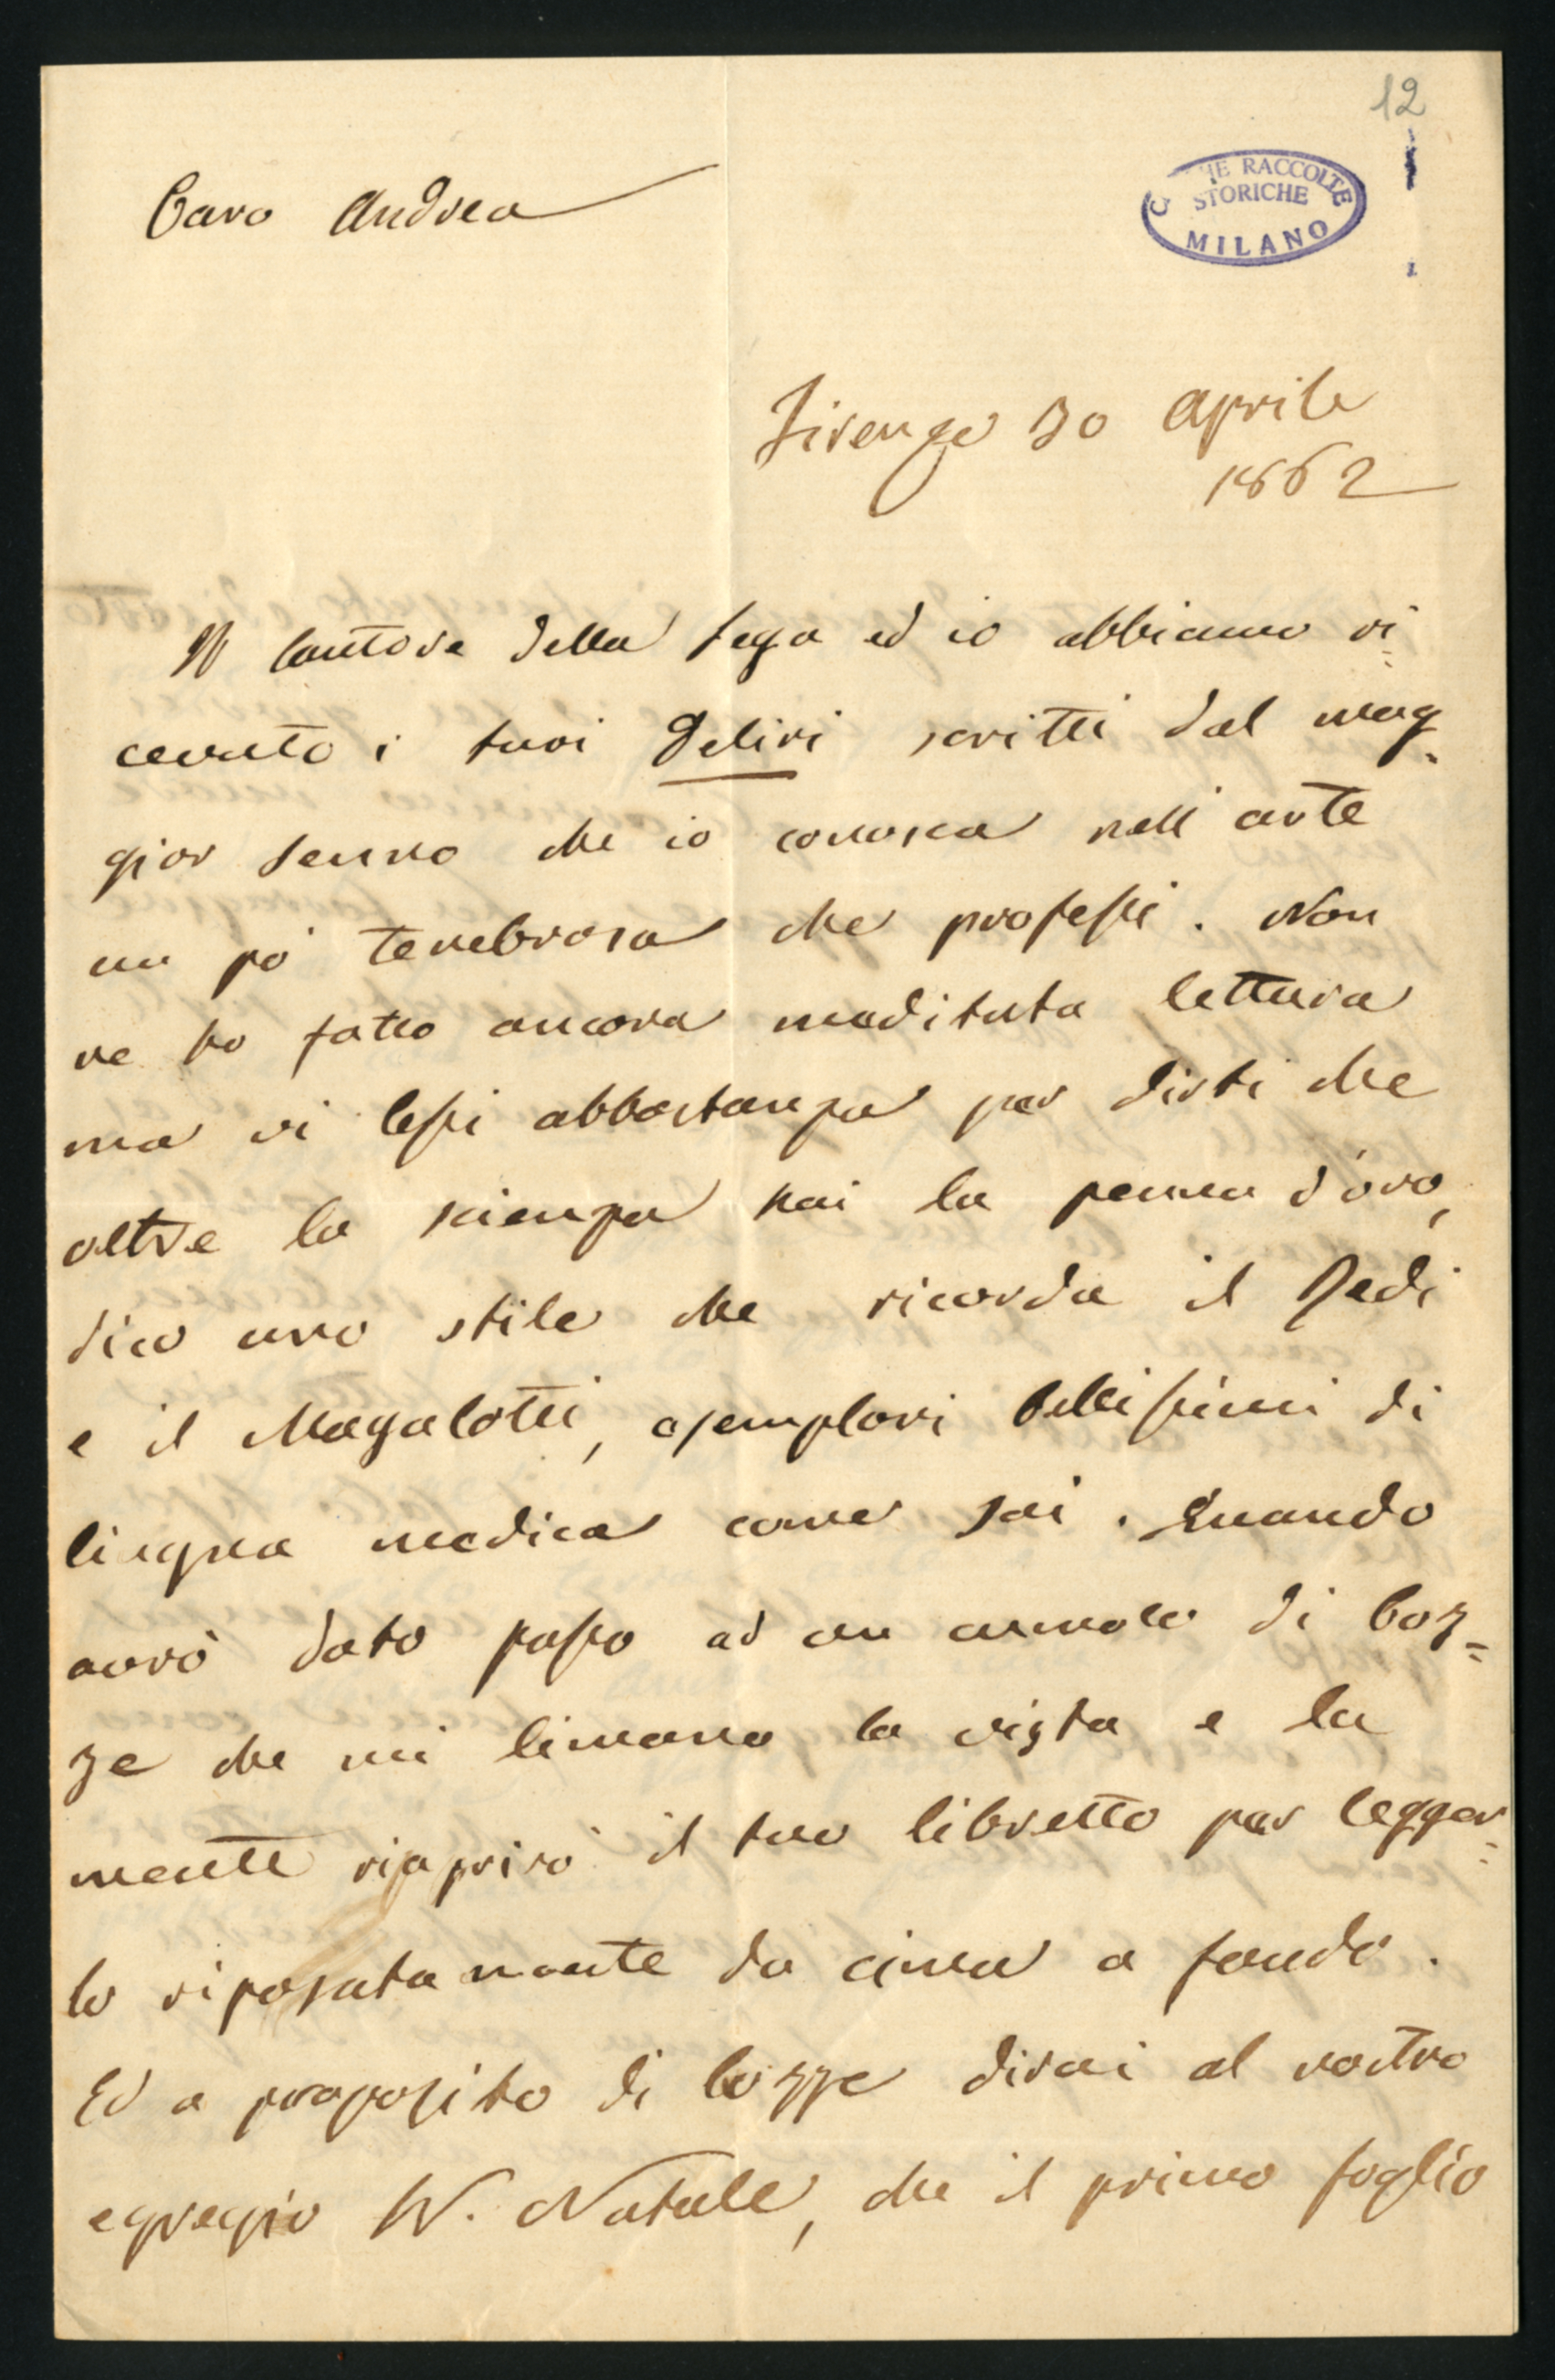 12
CIVICHE RACCOLTE
STORICHE
MILANO
Caro Andrea
Firenze 30 Aprile
1862
Il Cantore della sega ed io abbiamo ri=
cevuto i tuoi Deliri scritti dal mag=
gior senno che io conosca nell'arte
un pò tenebrosa che professi. Non
ne ho fatto ancora meditata lettura
ma vi lessi abbastanza per dirti che
oltre la scienza hai la penna d'oro,
dico uno stile che ricorda il Redi
e il Magalotti, esemplari bellissimi di
lingua medica come sai. Quando
avrò dato passo ad un cumolo di boz=
ze che mi limano la vista e la
mente riaprirò il tuo libretto per legger=
lo riposatamente da cima a fondo.
Ed a proposito di bozze dirai al vostro
egregio Natale, che il primo foglio